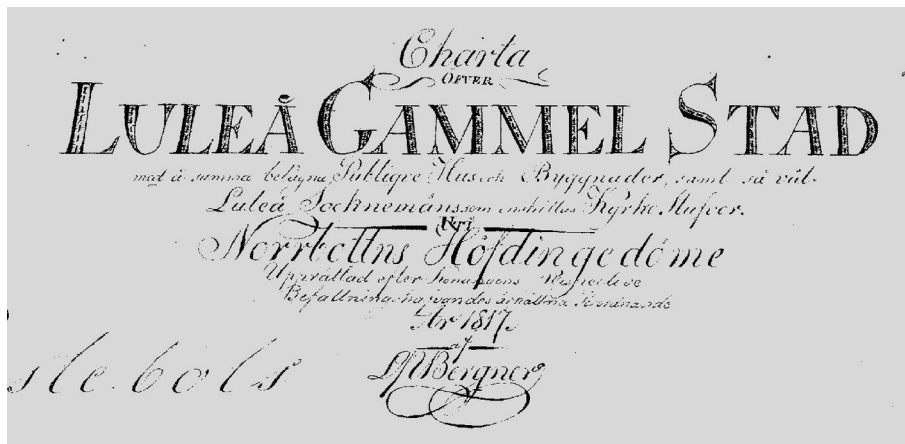 Charta
ÖFVER
LULEÅ GAMMEL STAD
med å samma belägna Publiqve Hus och Byggnader, samt så väl
Luleå Socknemäns som enskildas Kyrke Stufvor.
uti
Norrbottns Höfdingedöme
Upprättad efter Konungens Respective
Befallningshafvandes
År 1817.
af
Bergner
sle bols